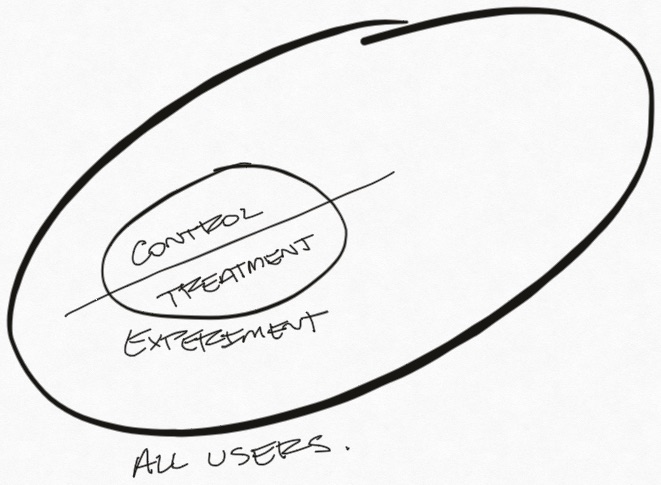 CONTROL
TREATMENT
EXPERIMENT
ALL USERS.